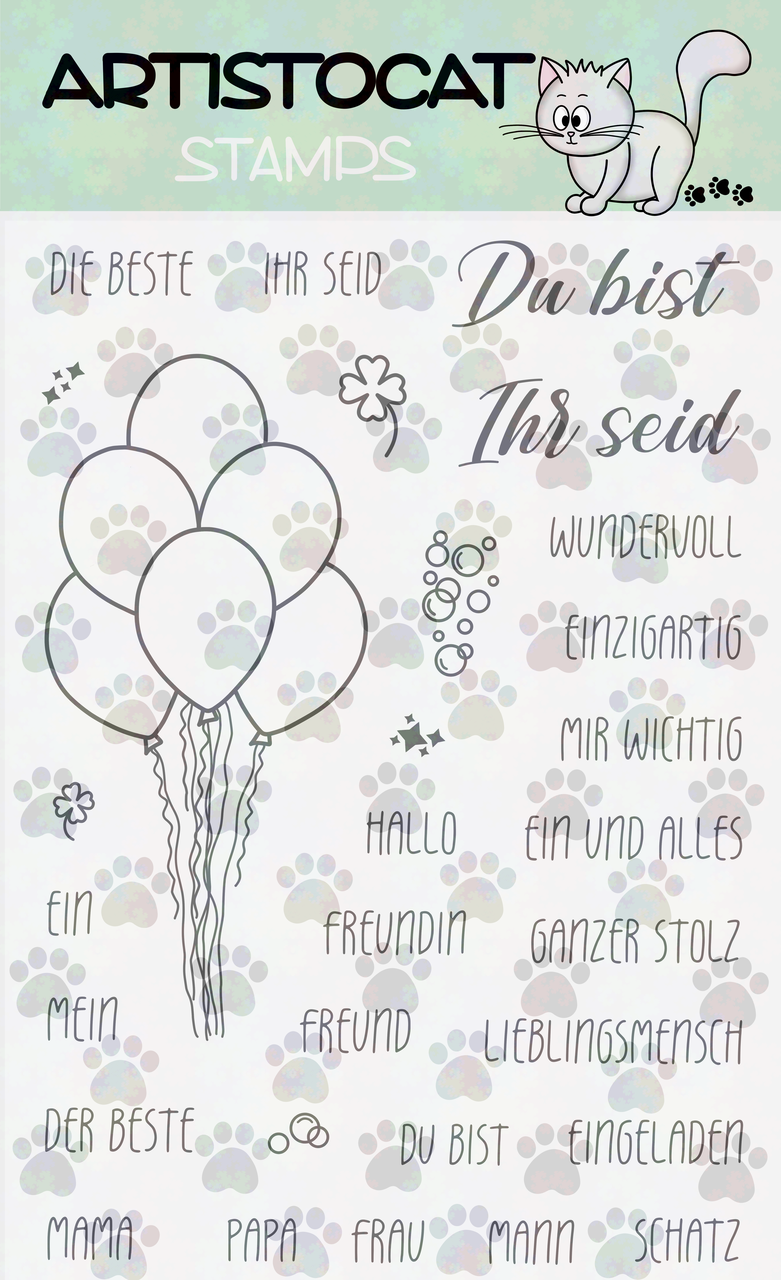 ARTISTOCAT
STAMPS
DIE BESTE
IHR SEID
Du bist
Ihr seid
WUNDERVOLL
EINZIGARTIG
MIR WICHTIG
HALLO
EIN UND ALLES
EIN
FREUNDIN
GANZER STOLZ
MEIN
FREUND
LIEBLINGSMENSCH
DER BESTE
DU BIST
EINGELADEN
MAMA
PAPA
FRAU
MANN
SCHATZ